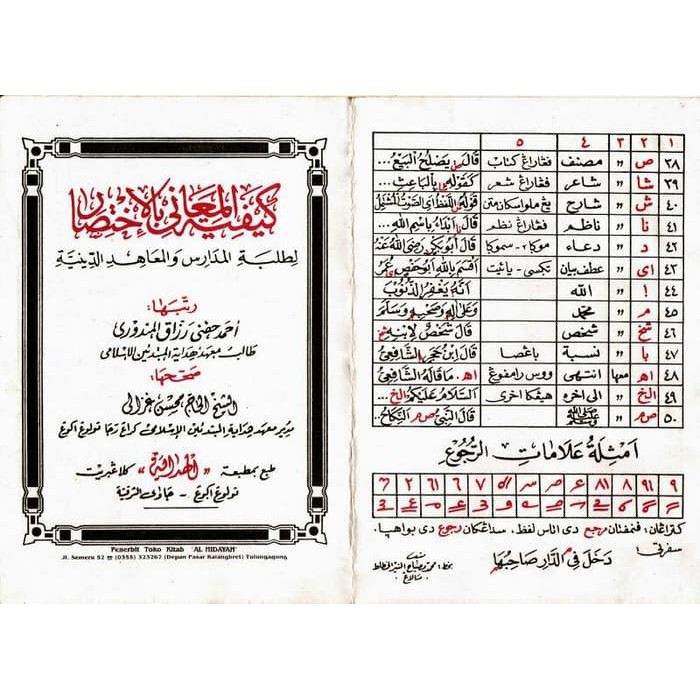 كيفية المعاني بالإختصار
لطلبة المدارس والمعاهد الدينية
رتبها:
أحمد حفني رزاق المندوري
طالب معهد هداية المبتدئين الإسلامي
صححها:
الشيخ الحاج محسن غزالي
مدير معهد هداية المبتدئين الإسلامي كراغ رجا تولوغ اكوغ
طبع بمطبعة "الهداية" كلاغبريت
تولوغ اكوغ - جاوى الشرقية
Penerbit Toko Kitab "AL HIDAYAH"
Jl. Semeru 52 ☎ (0355) 323267 (Depan Pasar Kalangbret) Tulungagung
١ ٢ ٣ ٤ ٥
٣٨ ص " مصنف فڠاراڠ كتاب قال ص يصلح البيع...
٣٩ شا " شاعر فڠاراڠ شعر كقوله شا بالباعث...
٤٠ ش " شارح
٤١ نا " ناظم فڠاراڠ نظم قال نا أبدأ باسم الله...
٤٢ د " دعاء موكا٢ - سموكا قال أبو بكر رضي الله عنه
٤٣ اى " عطف بيان تكسى - يائيت أقسم بالله أبو حفص عمر
٤٤ ! " الله أنه يغفر الذنوب
٤٥ م " محمد وعلى آله وصحبه وسلم
٤٦ شخ " شخص قال شخص لابنه
٤٧ با " نسبة باڠصا قال ابن حجر الشافعي
٤٨ اهـ معها انتهى ووس رامفوڠ اهـ. ما قاله الشافعي
٤٩ الخ " الى اخره هيڠكا اخرى السلام عليكم الخ...
٥٠ صم " صلى الله عليه وسلم قال النبي صم النكاح...
أمثلة علامات الرجوع
دى اتاس لفظ، سداڠكان رجوع دى بواهڽا.
دخل في الدار صاحبها